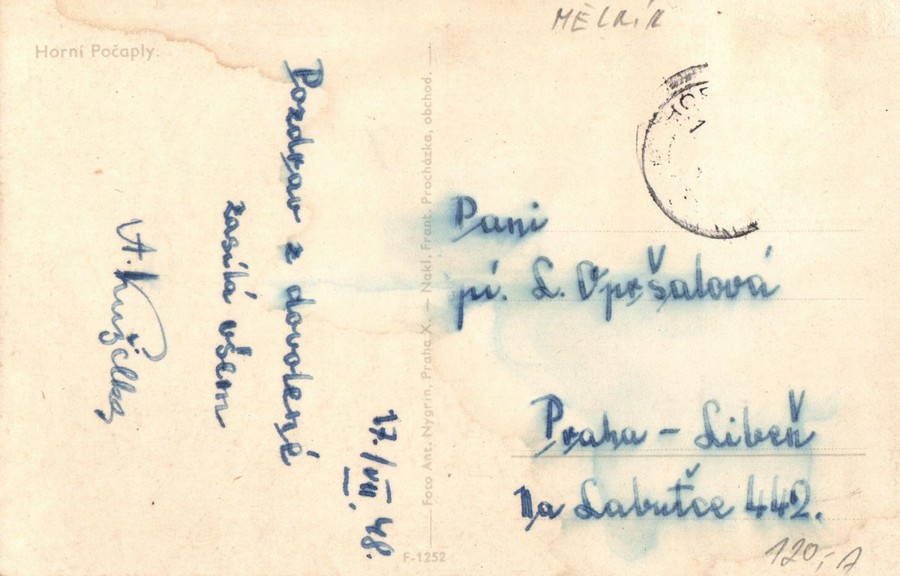 MĚLNÍK
Horní Počaply.
Pozdrav z dovolené
zasílá všem
A. Kuželka
17./VIII. 48.
Foto Ant. Nygrín, Praha X. — Nakl. Frant. Procházka, obchod.
F-1252
Paní
pí. L. Opršalová
Praha - Libeň
Na Labuťce 442.
120,- A